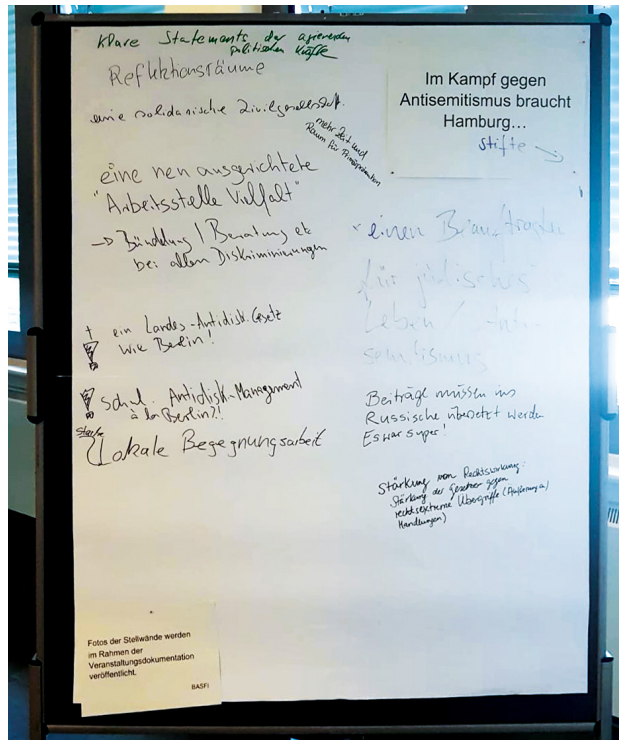 klare Statements der agierenden
politischen Kräfte
Reflektionsräume
eine solidarische Zivilgesellschaft.
mehr Zeit und
Raum für Primärprävention
eine neu ausgerichtete
"Arbeitsstelle Vielfalt"
→ Bündelung / Beratung etc
bei allen Diskriminierungen
† ein Landes-Antidisk.Gesetz
wie Berlin!
! schul. Antidisk-Management
à la Berlin?!
Starke
Lokale Begegnungsarbeit
Im Kampf gegen
Antisemitismus braucht
Hamburg...
Stifte →
einen Beauftragten
für jüdisches
Leben / Anti-
semitismus
Beiträge müssen ins
Russische übersetzt werden
Es war super!
Stärkung von
Stärkung der Gesetze gegen
rechtsextreme Übergriffe (
Handlungen)
Fotos der Stellwände werden
im Rahmen der
Veranstaltungsdokumentation
veröffentlicht.
BASFI